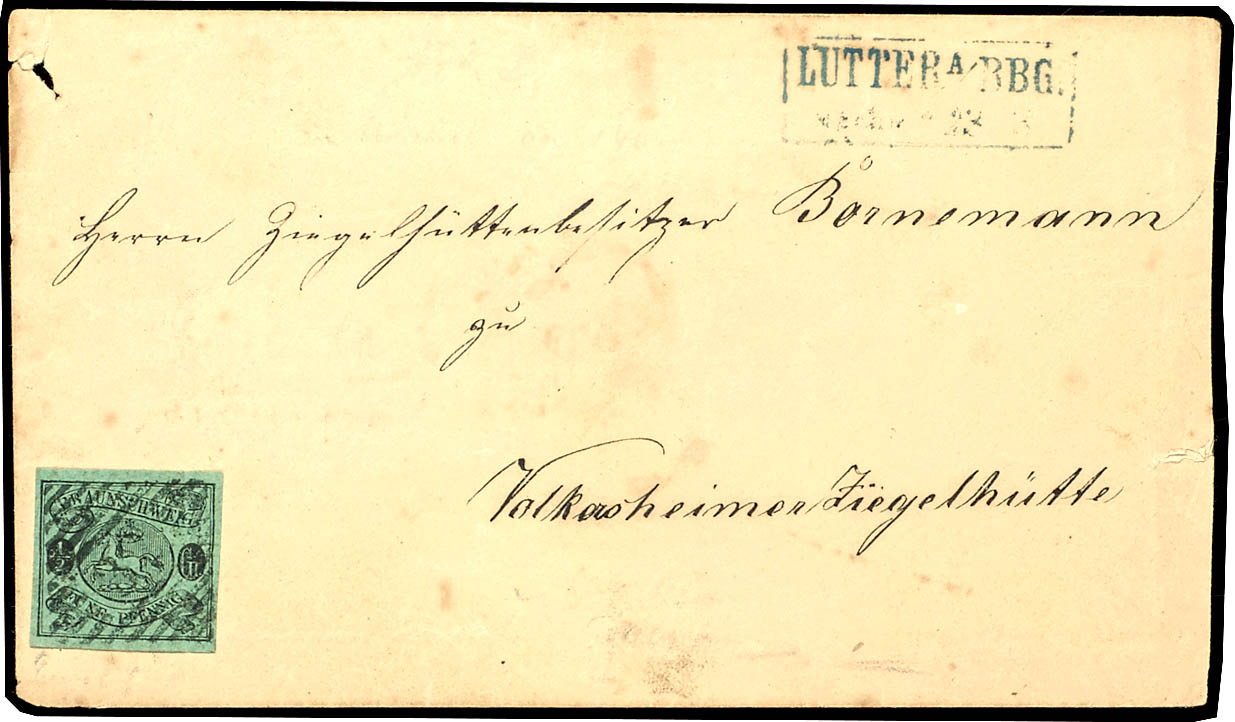 LUTTER A/BBG.
Herrn Ziegelhüttenbesitzer Bornemann
zu
Volkersheimer Ziegelhütte
BRAUNSCHWEIG
1/2
FÜNF PFENNIG